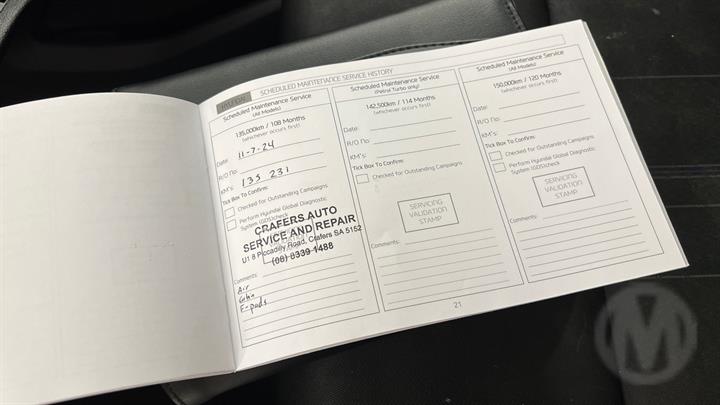 HISTORY
SCHEDULED MAINTENANCE SERVICE HISTORY
Scheduled Maintenance Service
(All Models)
135,000km / 108 Months
(whichever occurs first)
Date: 11-7-24
R/O No:
KM's: 135 231
Tick Box To Confirm:
Checked for Outstanding Campaigns
Perform Hyundai Global Diagnostic
System (GDS)check
CRAFERS AUTO
SERVICE AND REPAIR
U1 8 Piccadilly Road, Crafers SA 5152
(08) 8339 1488
Comments:
Air
F-pads
Scheduled Maintenance Service
(Petrol Turbo only)
142,500km / 114 Months
(whichever occurs first)
Date:
R/O No:
KM's:
Tick Box To Confirm:
Checked for Outstanding Campaigns
SERVICING
VALIDATION
STAMP
Comments:
Scheduled Maintenance Service
(All Models)
150,000km / 120 Months
(whichever occurs first)
Date:
R/O No:
KM's:
Tick Box To Confirm:
Checked for Outstanding Campaigns
Perform Hyundai Global Diagnostic
System (GDS)check
SERVICING
VALIDATION
STAMP
Comments:
21
M